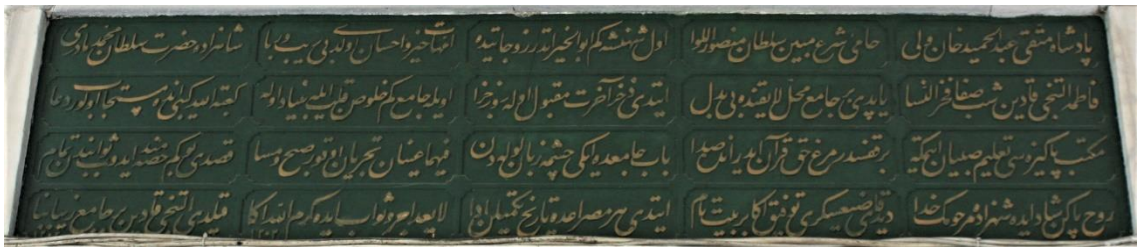 پادشاه متقی عبدالحمید خان ولی حامی شرع مبین سلطان منصور اللوا اول شهنشه کم ابوالخیراتدر امهات خیر و احسان اولدی بی ریب و ریا شاهزاده حضرت سلطان محمد مادری
فاطمه التنجی قادین شب صفا فخر النسا یاپدی بر جامع محل لایقنده بی بدل ایتدی ذخر آخرت مقبول اوله روز جزا اویله جامع کم خلوص قلب ایله بنیاد اوله کعبة الله کبی انده مستجاب اولور دعا
مکتب پاکیزه سی تعلیم صبیان بر قفسدر مرغ حق قرآن ایدر انده صدا باب جامعده ایکی چشمه زبان لوله دن فیهما عینان تجریان اوقور صبح و مسا قصدی بو کم حصه مند ایده ثوابندن تمام
روح پاکن شاد ایده شهزاده مرحومک خدا دیدی قاضیعسکری توفیق اکا بر بیت تام ایتدی هر مصراعده تاریخ تکمیلن ادا لا یعد اجر و ثواب ایده کرم الله اکا قیلدی التنجی قادین بر جامع زیبا بنا